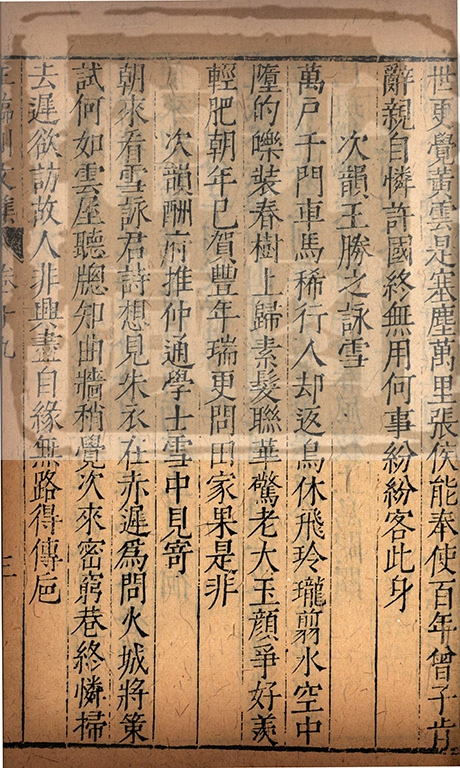 世更覺黃雲是塞塵萬里張侯能奉使百年曾子肯
辭親自憐許國終無用何事紛紛客此身
次韻王勝之詠雪
萬戸千門車馬稀行人却返鳥休飛玲瓏剪水空中
墮的皪裝春樹上歸素髮聯華驚老大玉顏爭好羨
輕肥朝年已賀豐年瑞更問田家果是非
次韻酬府推仲通學士雪中見寄
朝來看雪詠君詩想見朱衣在赤遲爲問火城將策
試何如雲屋聽牕知曲牆稍覺次來密窮巷終憐掃
去遲欲訪故人非興盡自緣無路得傳巵
王臨川文集 卷十九 三